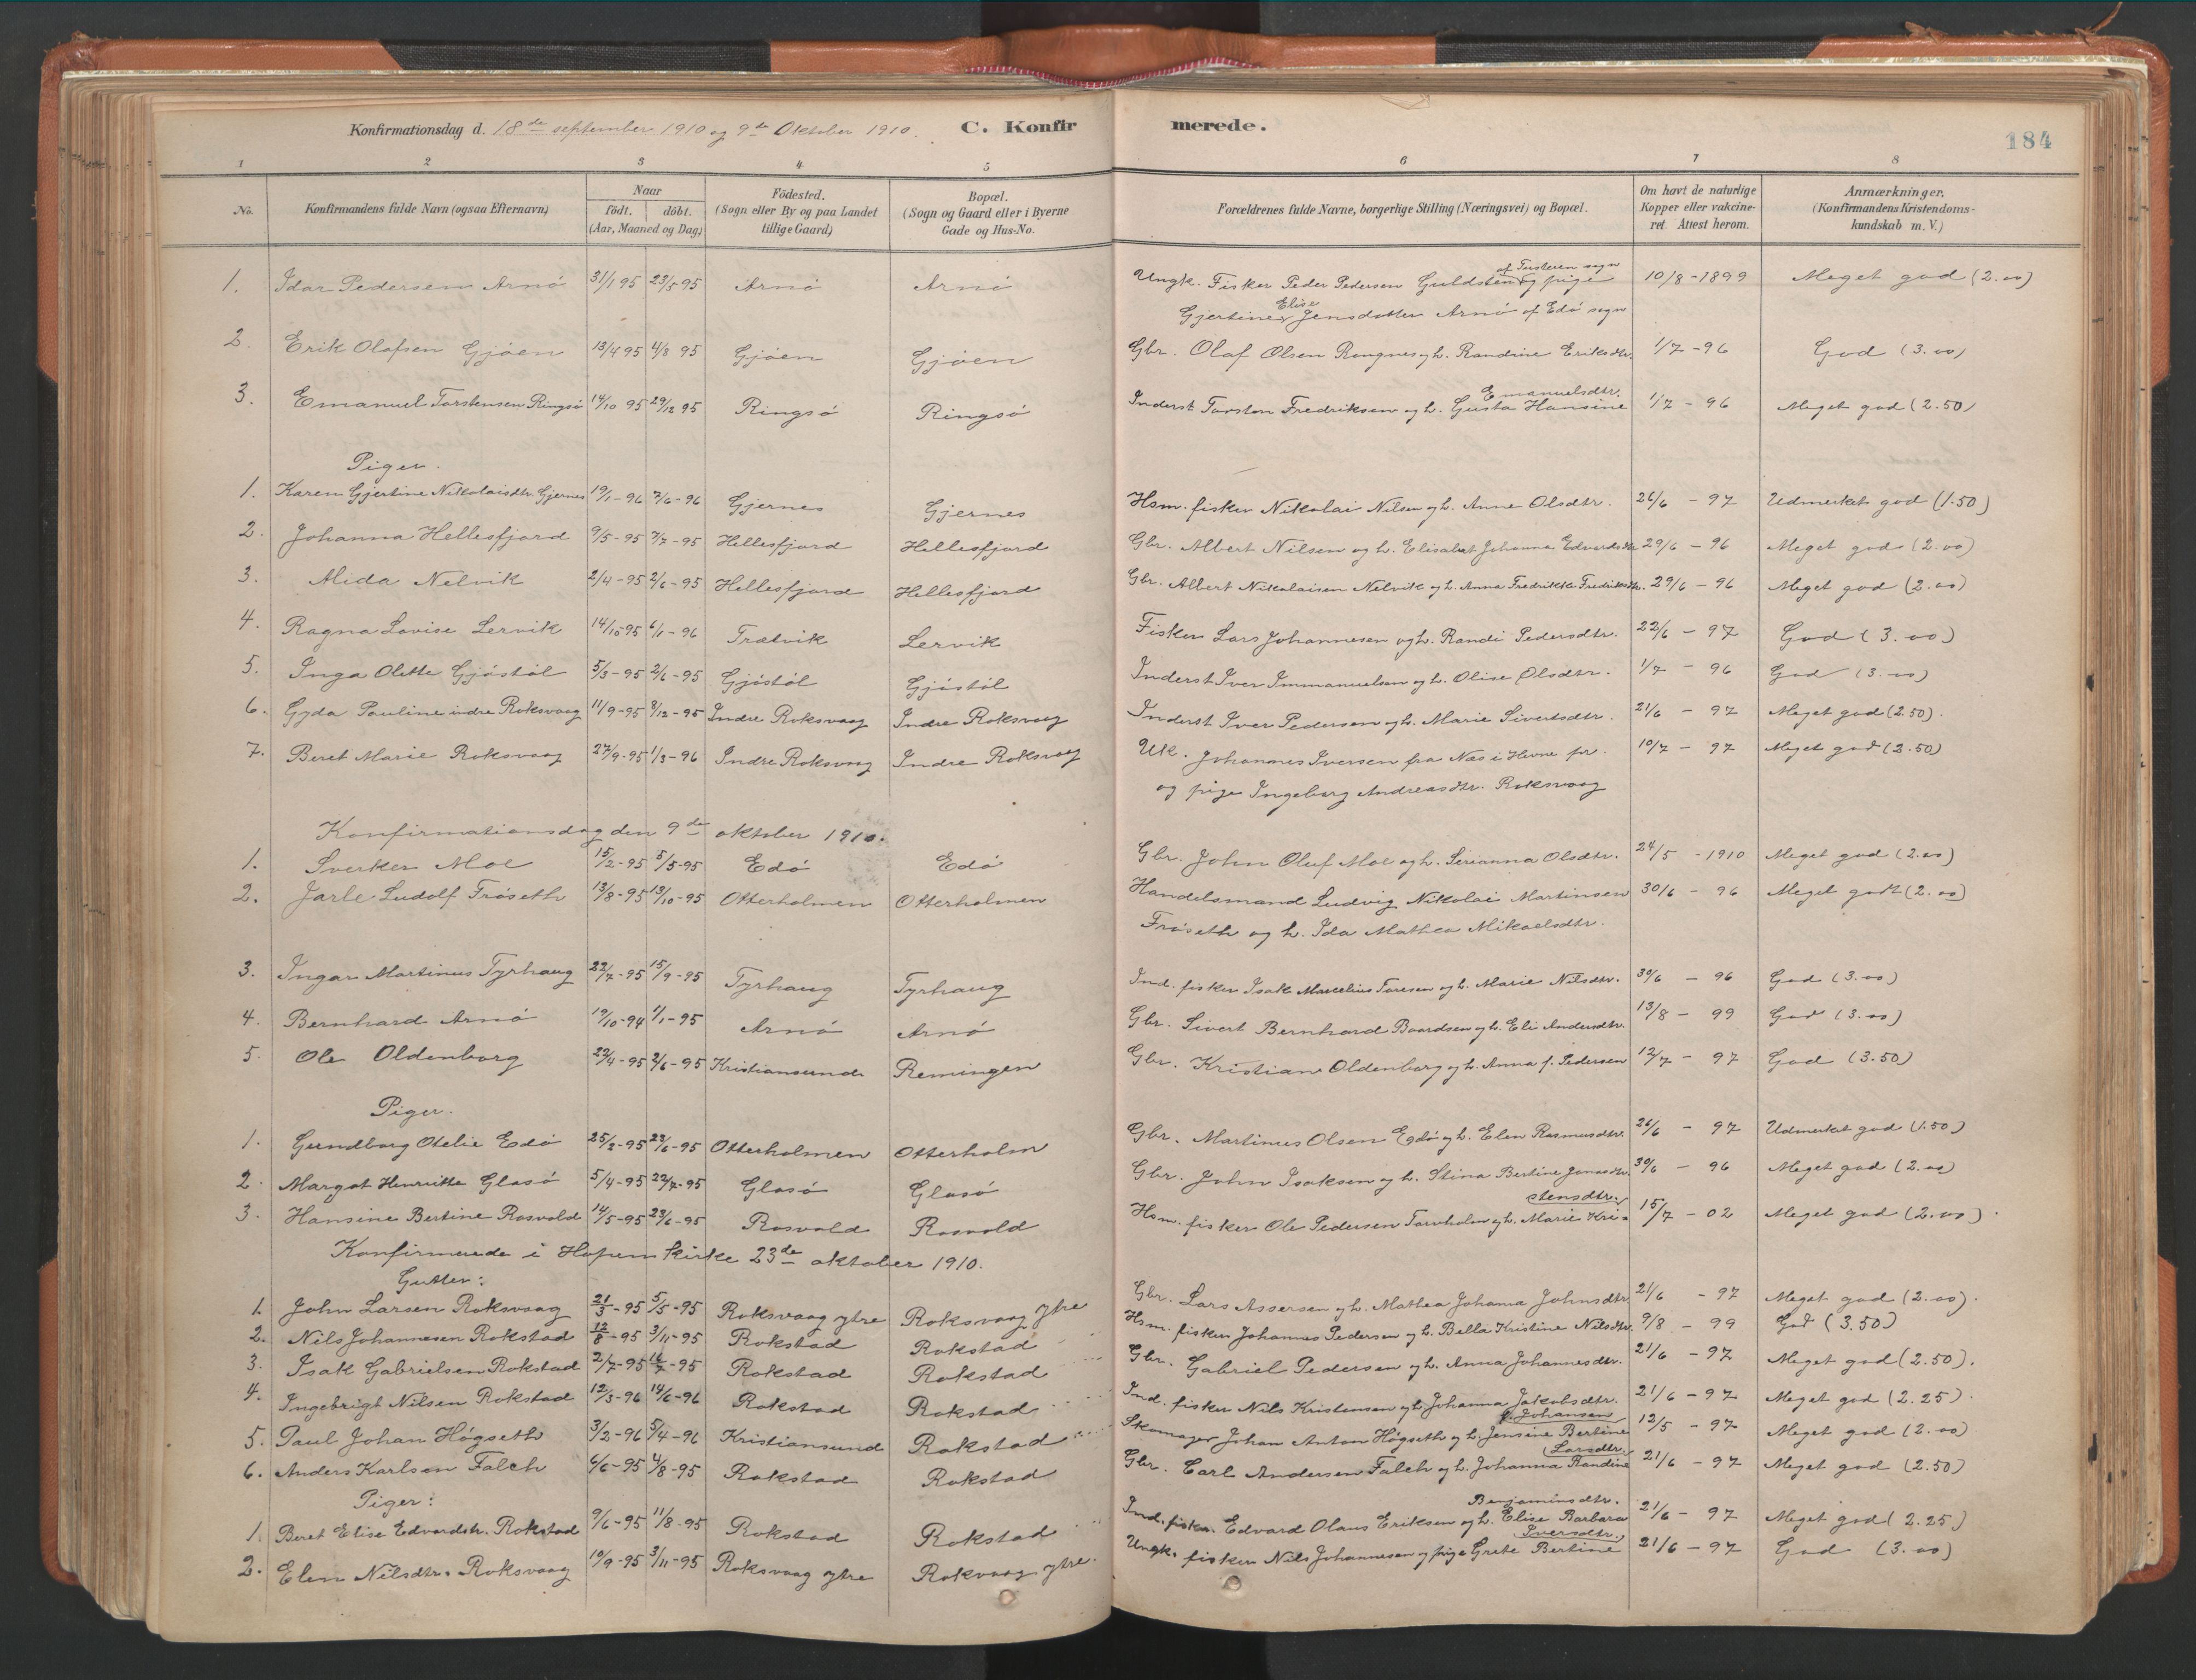 Konfirmationsdag d. 18de september 1910 og 9de Oktober 1910. C. Konfirmerede. 184
1 2 3 4 5 6 7 8
No. Konfirmandens fulde Navn (ogsaa Efternavn) Naar født. døbt. (Aar, Maaned og Dag) Födested. (Sogn eller By og paa Landet tillige Gaard) Bopæl. (Sogn og Gaard eller i Byerne Gade og Hus-No. Forældrenes fulde Navne, borgerlige Stilling (Næringsvei) og Bopæl. Om havt de naturlige Kopper eller vakcineret. Attest herom. Anmærkninger. (Konfirmandens Kristendomskundskab m. V.)
1. Idar Pedersen Arnö 31/1 95 23/5 95 Arnö Arnö Ungk. Fisker Peder Pedersen Guldsten af Tusteren sogn og pige 10/8 - 1899 Meget god (2.00)
Gjertine Elise Jensdatter Arnö af Edö sogn
2. Erik Olafsen Gjöen 13/4 95 4/8 95 Gjöen Gjöen Gbr. Olaf Olsen Rongnes og h. Randine Eriksdtr. 1/7 - 96 God (3.00)
3. Emanuel Torstensen Ringsö 14/10 95 29/12 95 Ringsö Ringsö Inderst Torsten Fredriksen og h. Gusta Hansine Emanuelsdtr. 1/7 - 96 Meget god (2.50)
Piger.
1. Karen Gjertine Nikolaisdtr. Gjernes 19/1 - 96 7/6 - 96 Gjernes Gjernes Hsm. fisker Nikolai Nilsen og h. Anne Olsdtr. 26/6 - 97 Udmerket god (1.50)
2. Johanna Hellesfjord 9/5 - 95 7/7 - 95 Hellesfjord Hellesfjord Gbr. Albert Nilsen og h. Elisabet Johanna Edvardsdtr 29/6 - 96 Meget god (2.00)
3. Alida Nelvik 2/4 - 95 2/6 - 95 Hellesfjord Hellesfjord Gbr. Albert Nikolaisen Nelvik og h. Anna Fredrikke Fredriksdtr. 29/6 - 96 Meget god (2.00)
4. Ragna Lovise Lervik 14/10-95 6/1 - 96 Trætvik Lervik Fisker Lars Johannesen og h. Randi Pedersdtr. 22/6 - 97 God (3.00)
5. Inga Olette Gjöstöl 5/3 - 95 2/6 - 95 Gjöstöl Gjöstöl Inderst Iver Immanuelsen og h. Olise Olsdtr. 1/7 - 96 God (3.00)
6. Gyda Pauline indre Roksvaag 11/9-95 8/12-95 Indre Roksvaag Indre Roksvaag Inderst Iver Pedersen og h. Marie Sivertsdtr. 21/6 - 97 Meget god (2.50).
7. Beret Marie Roksvaag 27/9-95 1/3-96 Indre Roksvaag Indre Roksvaag Uk. Johannes Iversen fra Næs i Hevne pr. 10/7 - 97 Meget god (2.50)
og pige Ingeborg Andreasdtr. Roksvaag
Konfirmationsdag den 9de oktober 1910.
1. Sverker Moe 15/2-95 5/5-95 Edö Edö Gbr. John Oluf Moe og h. Serianna Olsdtr. 24/5 - 1910 Meget god (2.00)
2. Jarle Ludolf Fröseth 13/8-95 13/10-95 Otterholmen Otterholmen Handelsmand Ludvig Nikolai Martinsen 30/6 - 96 Meget godt (2.00)
Fröseth og h. Ida Mathea Mikaelsdtr.
3. Ingar Martinus Tyrhaug 22/7-95 15/9-95 Tyrhaug Tyrhaug Ind. fisker Isak Marcelius Toresen og h. Marie Nilsdtr. 30/6 - 96 God (3.00)
4. Bernhard Arnö 19/10-94 1/1-95 Arnö Arnö Gbr. Sivert Bernhard Baardsen og h. Eli Andersdtr. 13/8 - 99 God (3.00)
5. Ole Oldenborg 22/4-95 2/6-95 Kristiansund Remingen Gbr. Kristian Oldenborg og h. Anna f. Pedersen 12/7 - 97 God (3.50)
Piger.
1. Gundborg Otelie Edö 25/2-95 23/6-95 Otterholmen Otterholm Gbr. Martinus Olsen Edö og h. Elen Rasmusdtr. 26/6 - 97 Udmerket god (1.50)
2. Margot Henriette Glasö 5/4-95 22/7-95 Glasö Glasö Gbr. John Isaksen og h. Stina Bertine Jonasdtr. 30/6 - 96 Meget god (2.00
3. Hansine Bertine Rosvold 14/5-95 23/6-95 Rosvold Rosvold Hsm. fisker Ole Pedersen Torvholm og h. Marie Kristensdtr. 15/7 - 02 Meget god (2.00).
Konfirmerede i Hopen kirke 23de oktober 1910.
Gutter:
1. John Larsen Roksvaag 21/3-95 5/5-95 Roksvaag ytre Roksvaag ytre Gbr. Lars Assersen og h. Mathea Johanna Johnsdtr. 21/6 - 97 Meget god (2.00).
2. Nils Johannesen Rokstad 12/8-95 3/11-95 Rokstad Rokstad Hsm. fisker Johannes Pedersen og h. Bella Kristine Nilsdtr. 9/8 - 99 God (3.50)
3. Isak Gabrielsen Rokstad 2/7-95 Rokstad Rokstad Gbr. Gabriel Pedersen og h. Anna Johannesdtr. 21/6 - 97 Meget god (2.50).
4. Ingebrigt Nilsen Rokstad 12/3-96 14/6-96 Rokstad Rokstad Ind. fisker Nils Kristensen og h. Johanna Jakobsdtr. 21/6 - 97 Meget god (2.25)
5. Paul Johan Högseth 3/2-96 5/4-96 Kristiansund Rokstad Skomager Johan Anton Högseth og h. Jensine Bertine f. Johansen 12/5 - 97 Meget god (2.00)
6. Anders Karlsen Falch 6/6-95 4/8-95 Rokstad Rokstad Gbr. Carl Andersen Falch og h. Johanna Randine Larsdtr. 21/6 - 97 Meget god (2.50)
Piger:
1. Beret Elise Edvardstr. Rokstad 9/6-95 11/8-95 Rokstad Rokstad Ind. fisker Edvard Olaus Eriksen og h. Elise Barbara Benjaminsdtr. 21/6 - 97 Meget god (2.25)
2. Elen Nilsdtr. Roksvaag 19/9-95 3/11-95 Roksvaag ytre Rokvaag ytre. Ungk. fisker Nils Johannesen og pige Grete Bertine Iversdtr. 21/6 - 97 God (3.00)